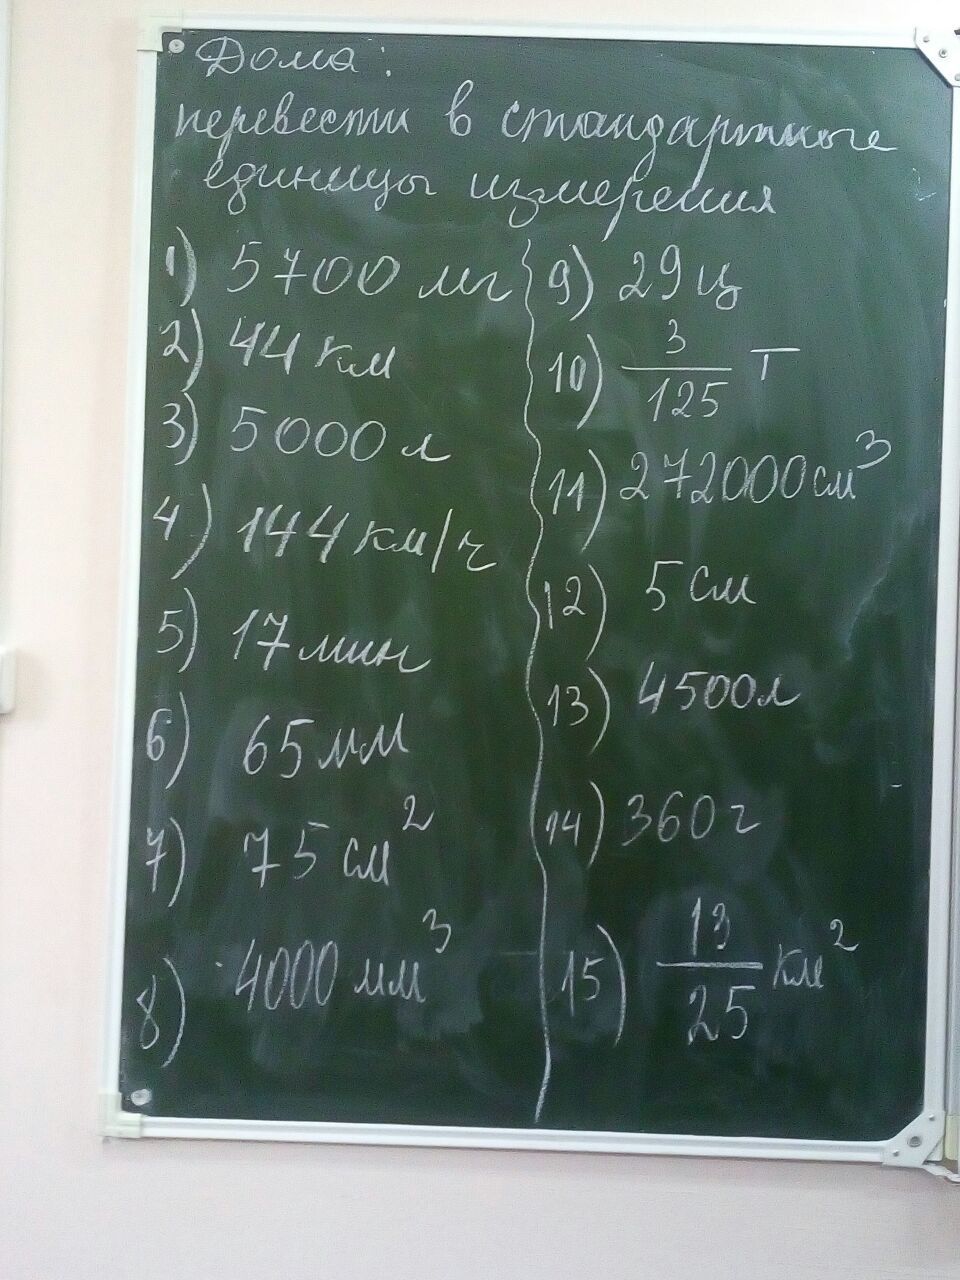 Дома:
перевести в стандартные
единицы измерения
1) 5700 мг
2) 44 км
3) 5000 л
4) 144 км/ч
5) 17 мин
6) 65 мм
7) 75 см²
8) 4000 мм³
9) 29 ц
10) 3/125 т
11) 272000 см³
12) 5 см
13) 4500 л
14) 360 г
15) 13/25 км²